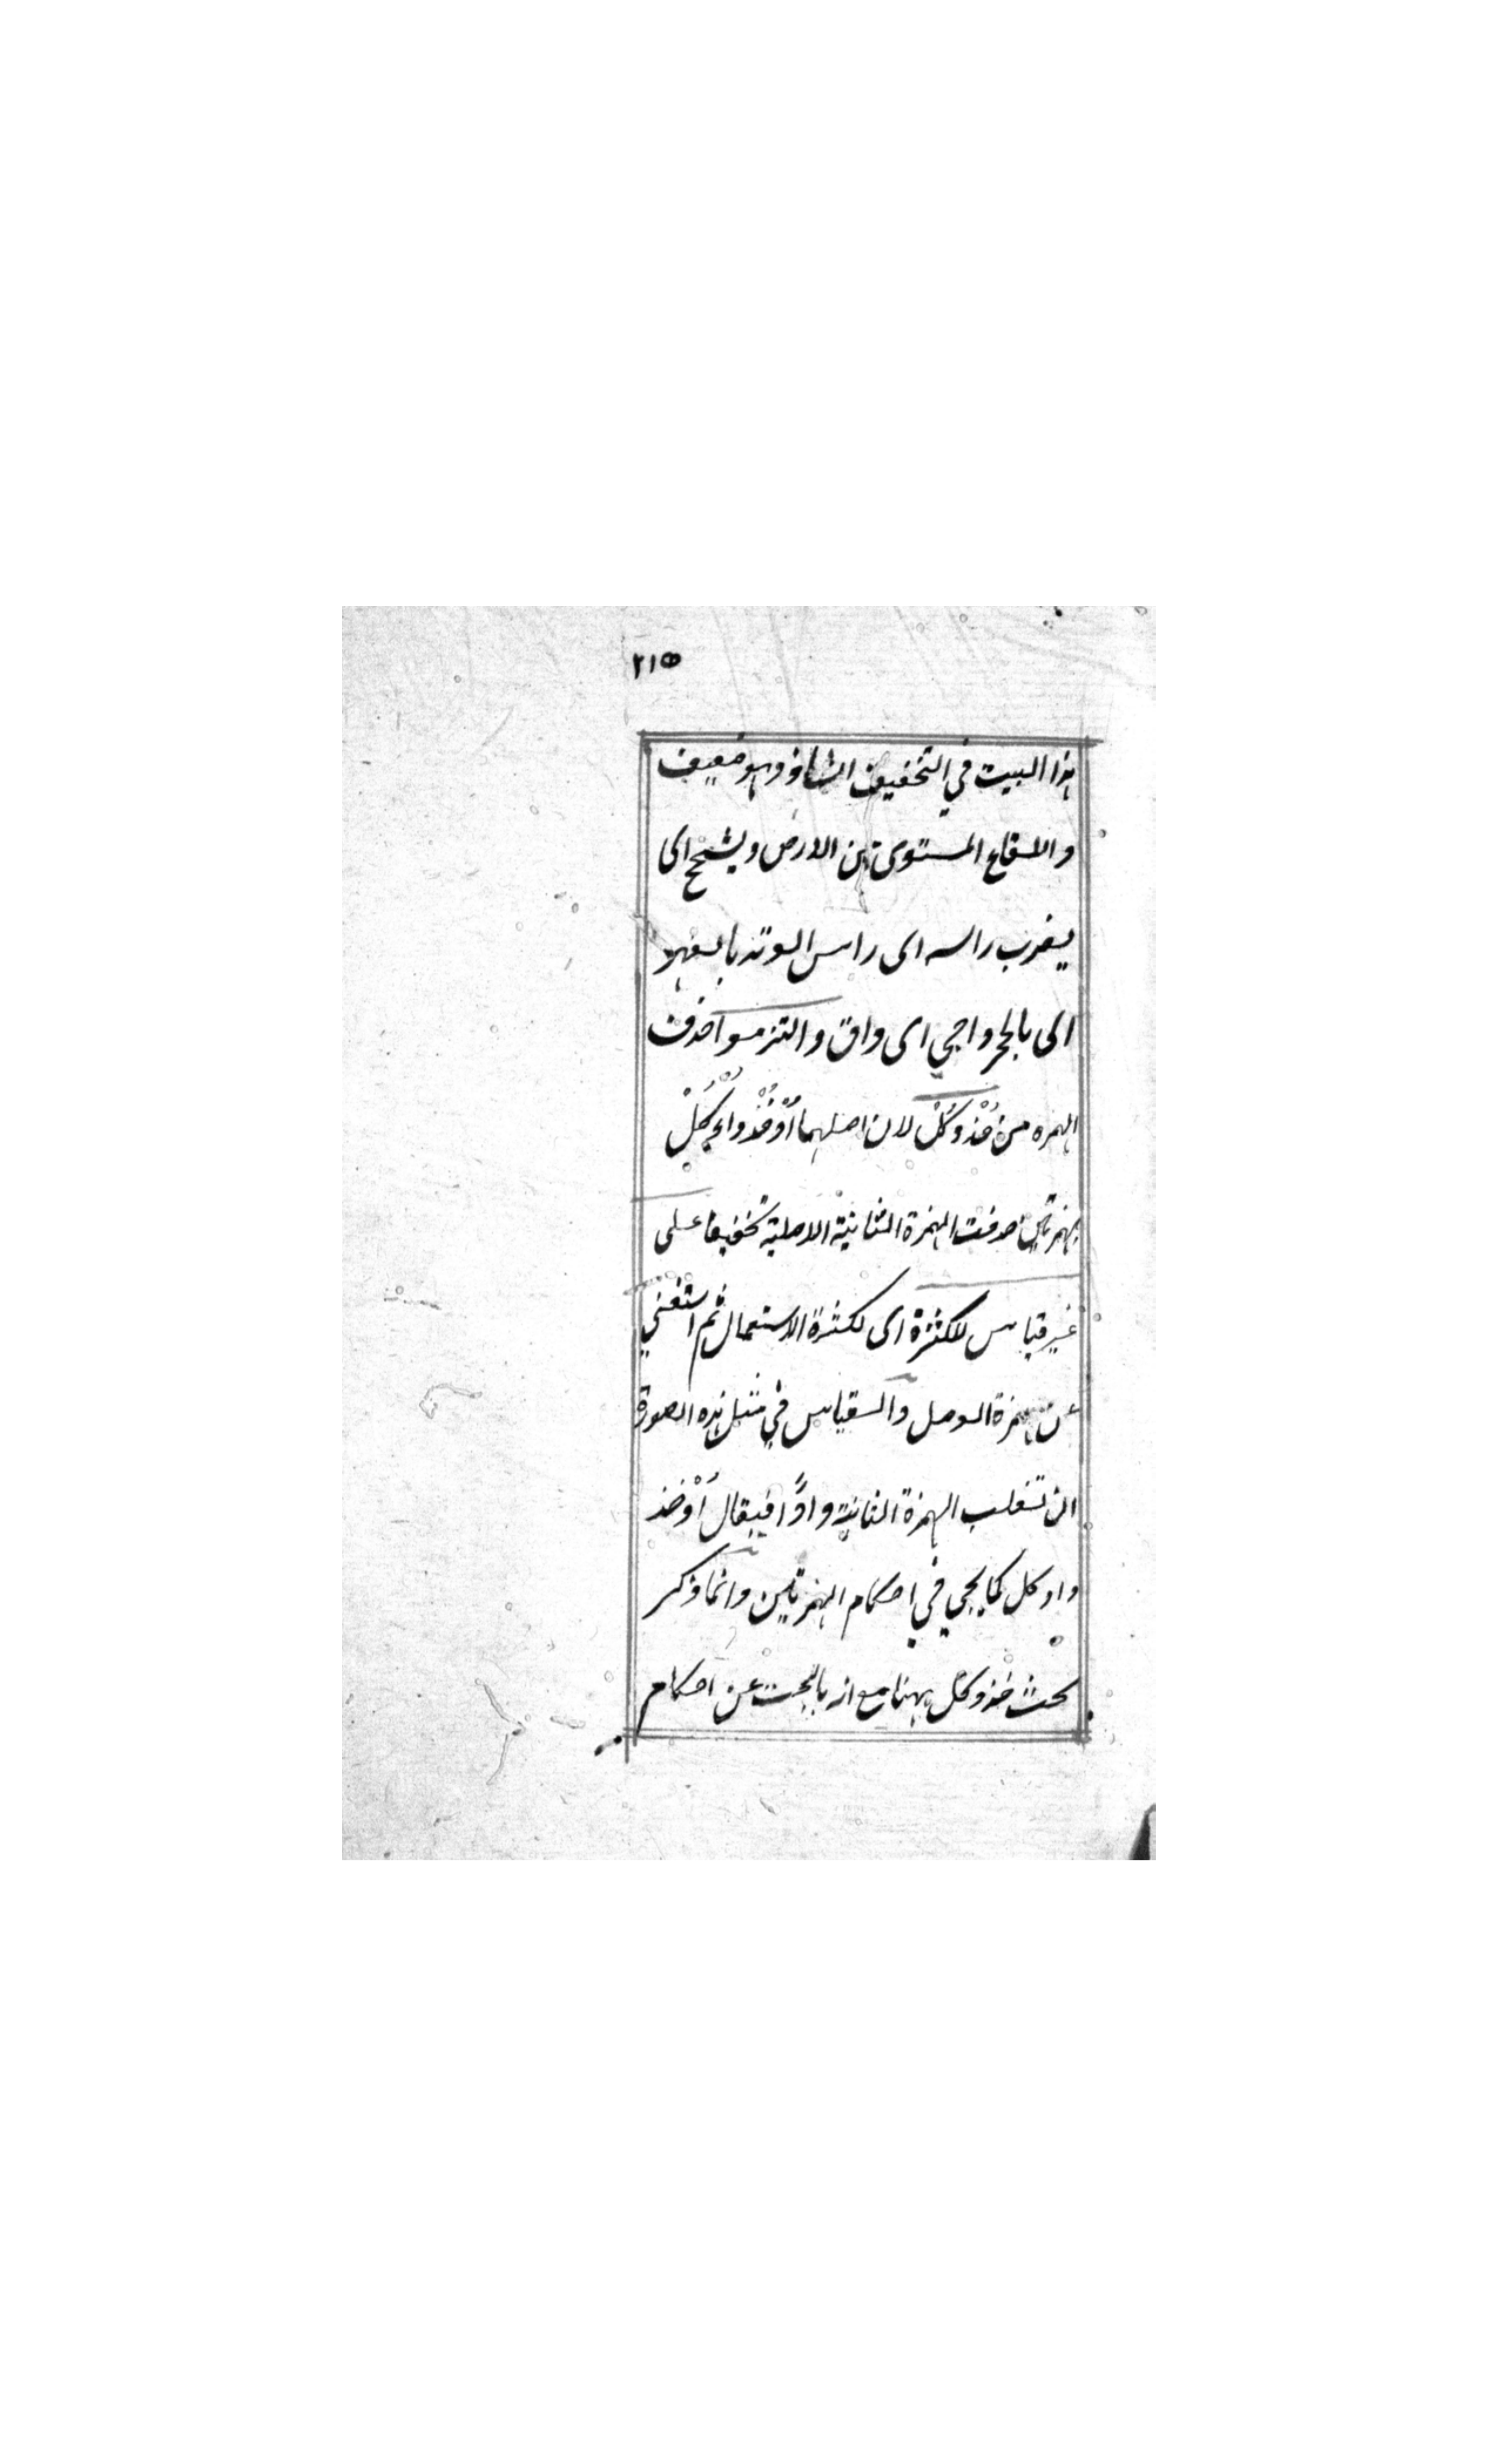 ٢١٥
هذا البيت في التخفيف الشاذ وهو ضعيف
والقاع المستوى من الارض ويشجج اى
يضرب راسه اى راس الوتد بالفهر
اى بالحجر واجي اى واق والتزموا حذف
الهمزه من خُذْ وكُلْ لان اصلهما اُؤْخُذْ واُءْكُلْ
بهمزتين حذفت الهمزة الثانية الاصلية تخفيفا على
غير قياس للكثرة اى لكثرة الاستعمال ثم استغني
عن همزة الوصل والقياس في مثل هذه الصورة
ان تقلب الهمزة الثانية واوًا فيقال اُوْخذ
واوكل كما يجي في احكام الهمزتين وانما ذكر
بحث خذ وكل ههنا مع انه بالبحث عن احكام